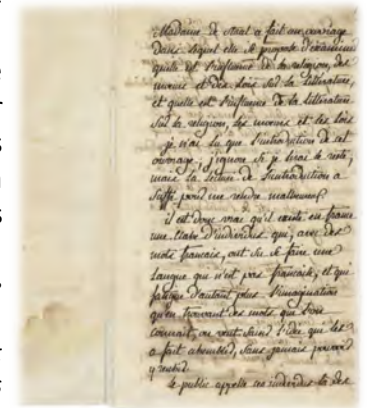 Madame de Stael a fait un ouvrage
Dans lequel elle se propose d'examiner
quelle est l'influence de la religion, des
mœurs et des lois sur la littérature,
et quelle est l'influence de la littérature
sur la religion, les mœurs et les lois
je n'ai lu que l'introduction de cet
ouvrage; j'ignore si je lirai le reste,
mais la lecture de l'introduction a
suffi pour me rendre malheureux
il est donc vrai qu'il existe en france
une classe d'individus qui, avec des
mots francais, ont su se faire une
langue qui n'est pas francaise, et qui
fatigue d'autant plus l'imagination
qu'en trouvant des mots que l'on
connait, on veut saisir l'idée qui les
a fait assembler, sans jamais pouvoir
y reussir.
le public appelle ces individus la